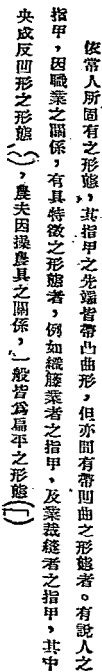 依常人所固有之形態，其指甲之先端皆帶凸曲形，但亦間有帶凹曲之形態者。有說人之
指甲，因職業之關係，有具特徵之形態者，例如織籐業者之指甲，及業裁縫者之指甲，其中
央成反凹形之形態(︶)，農夫因操農具之關係，一般皆爲扁平之形態(一)